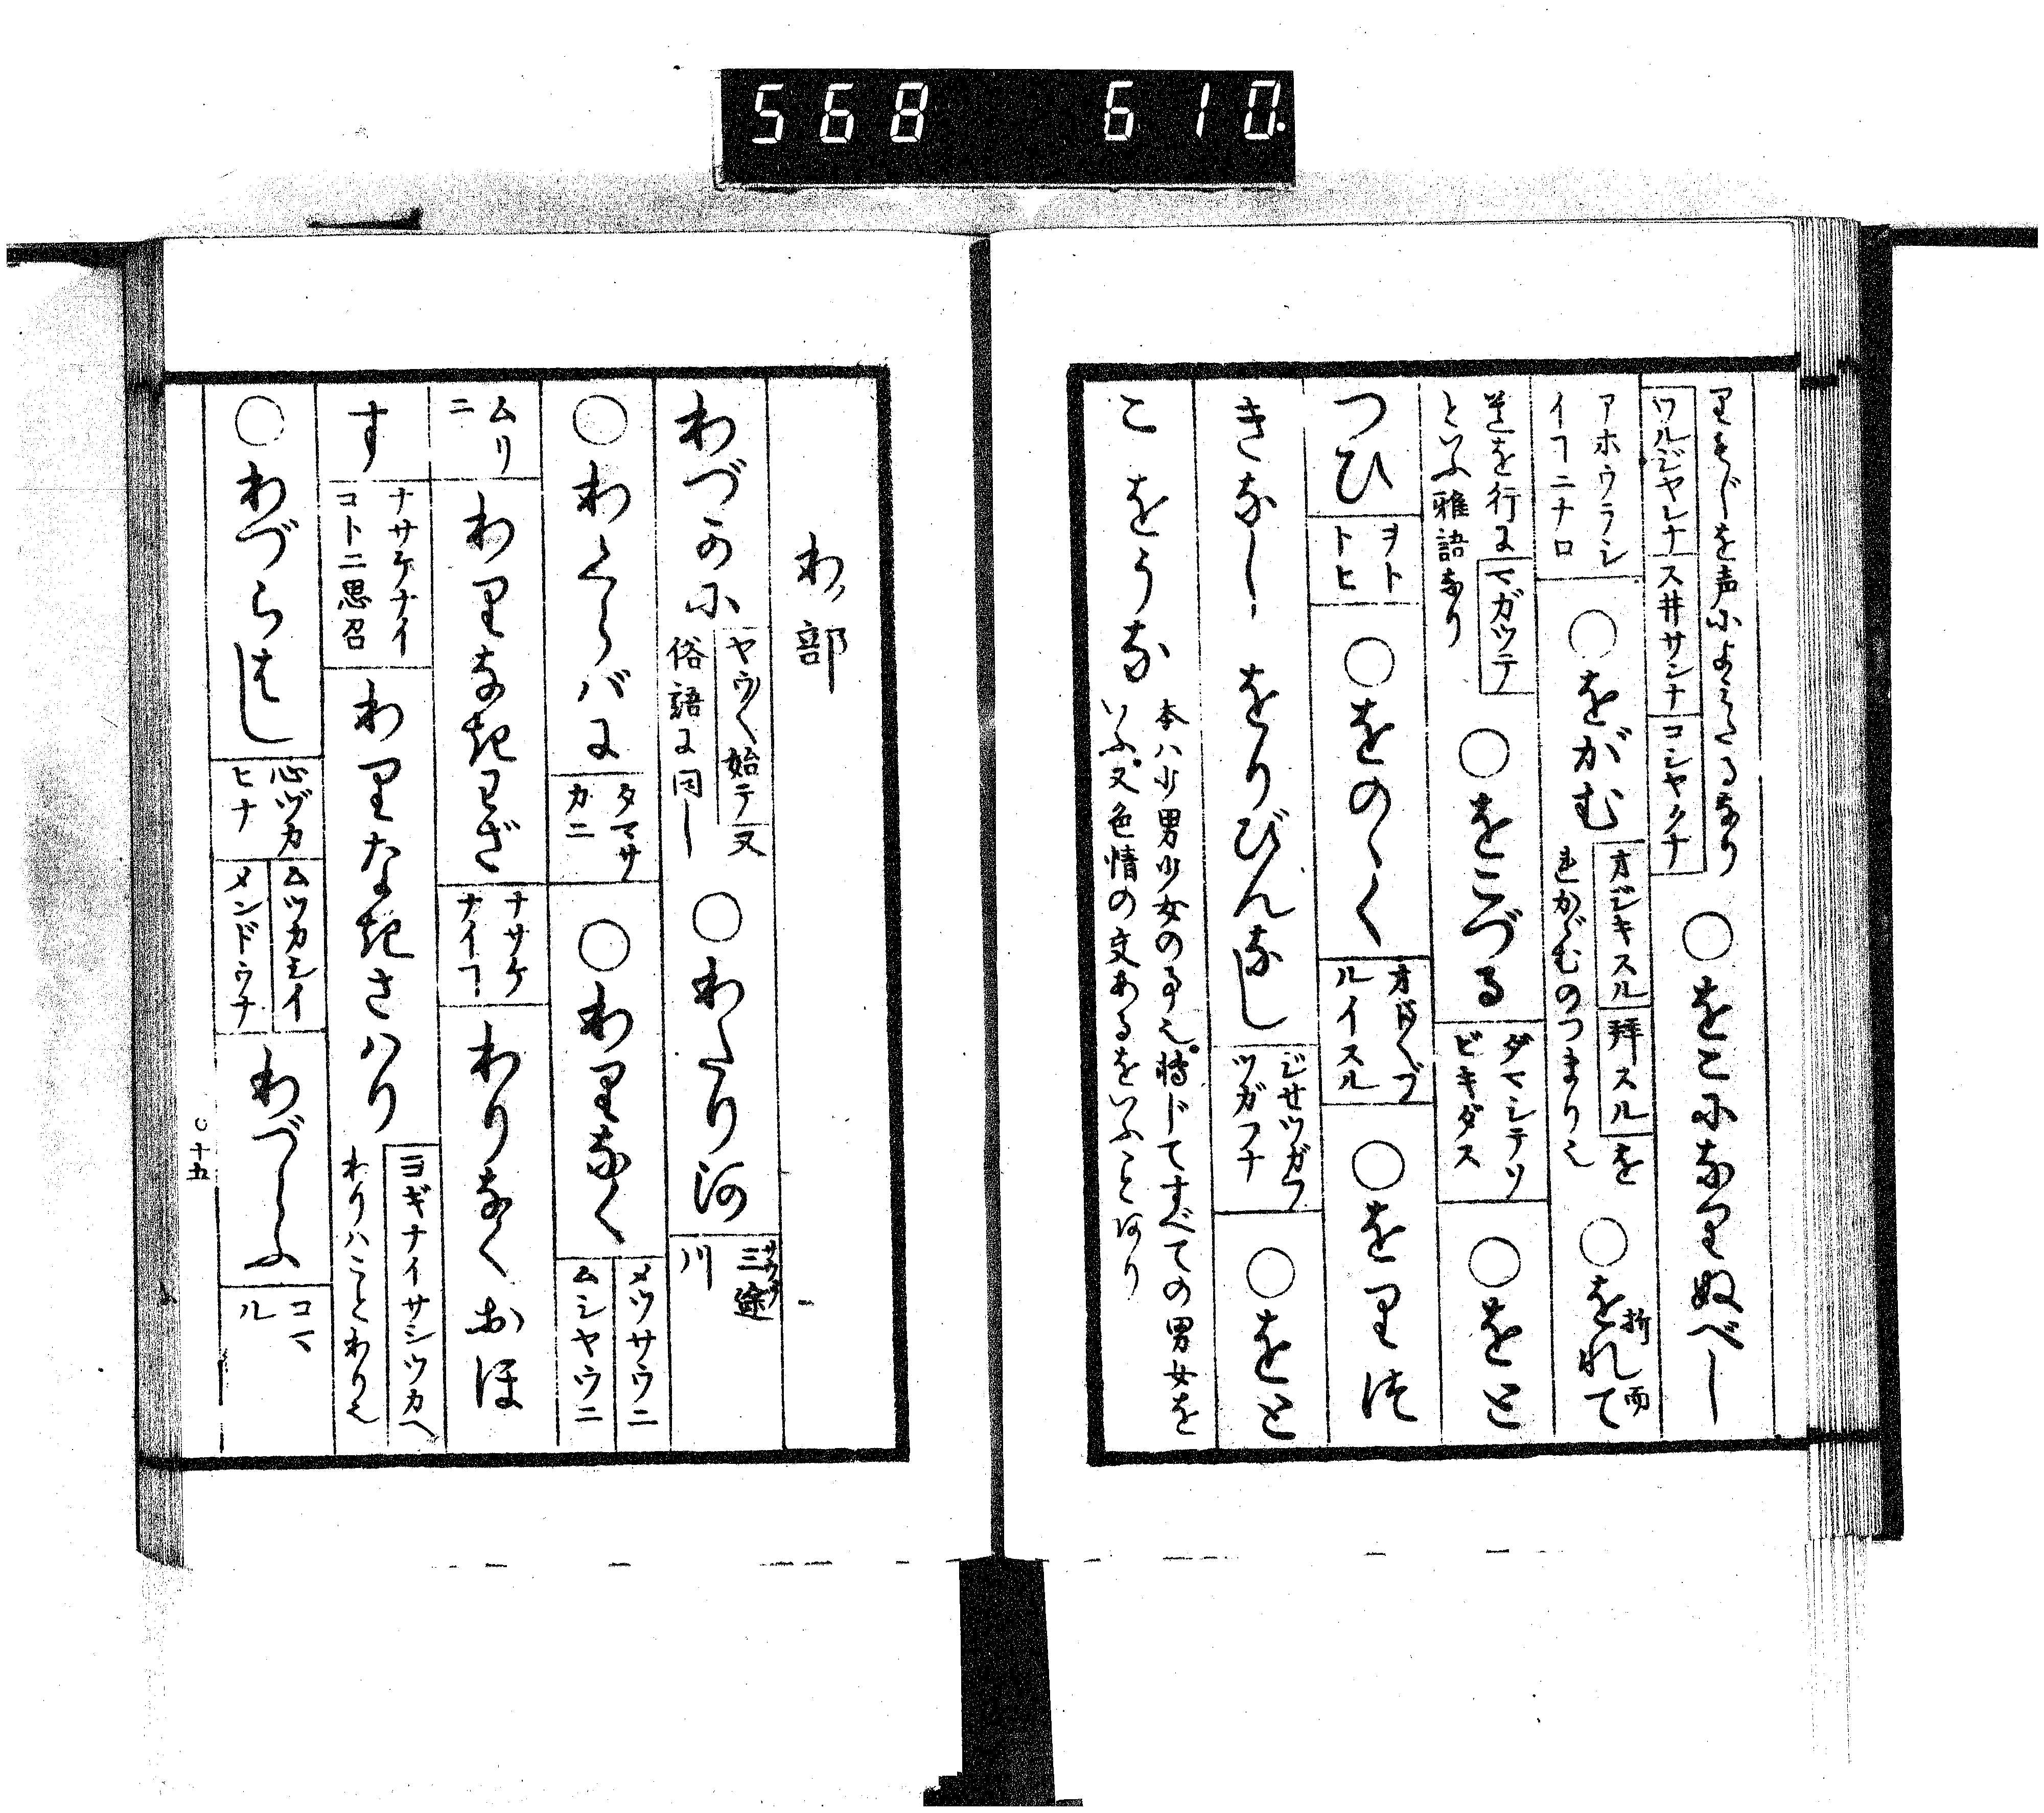 568 610.
りもじを声によみたるなり
ワルジヤレナ
ス井サンナ
コシヤクナ
○をこになりぬべし
アホウラシ
イヿニナロ
○をがむ
オジキスル
拝スル
を
れかゞむのつまり也
○をれて
折
而
道を行に
マガツテ
といふ雅語なり
○をこづる
ダマシテツ
ビキダス
○をと
つひ
ヲト
トヒ
○をのゝく
ルイスル
○をりは
きなし
をりびんなし
ジセツガワ
ツガフナ
○をと
こをうな
本ハ少男少女の事也。転じてすべての男女を
いふ。又色情の交あるをいふことあり
わ部
わづかに
ヤウ〳〵始テ
又
俗語に同し
○わたり河
三途
川
○わくらバに
タマサ
カニ
○わりなく
メツサウニ
ムシヤウニ
ムリ
ニ
わりなきわざ
ナサケ
ナイヿ
わりなくおほ
す
ナサケナイ
コトニ思召
わりなきさハり
ヨギナイサシツカへ
わりハことわり也
○わづらはし
心ヅカ
ヒナ
ムツカシイ
メンドウナ
わづらふ
コマ
ル
十五